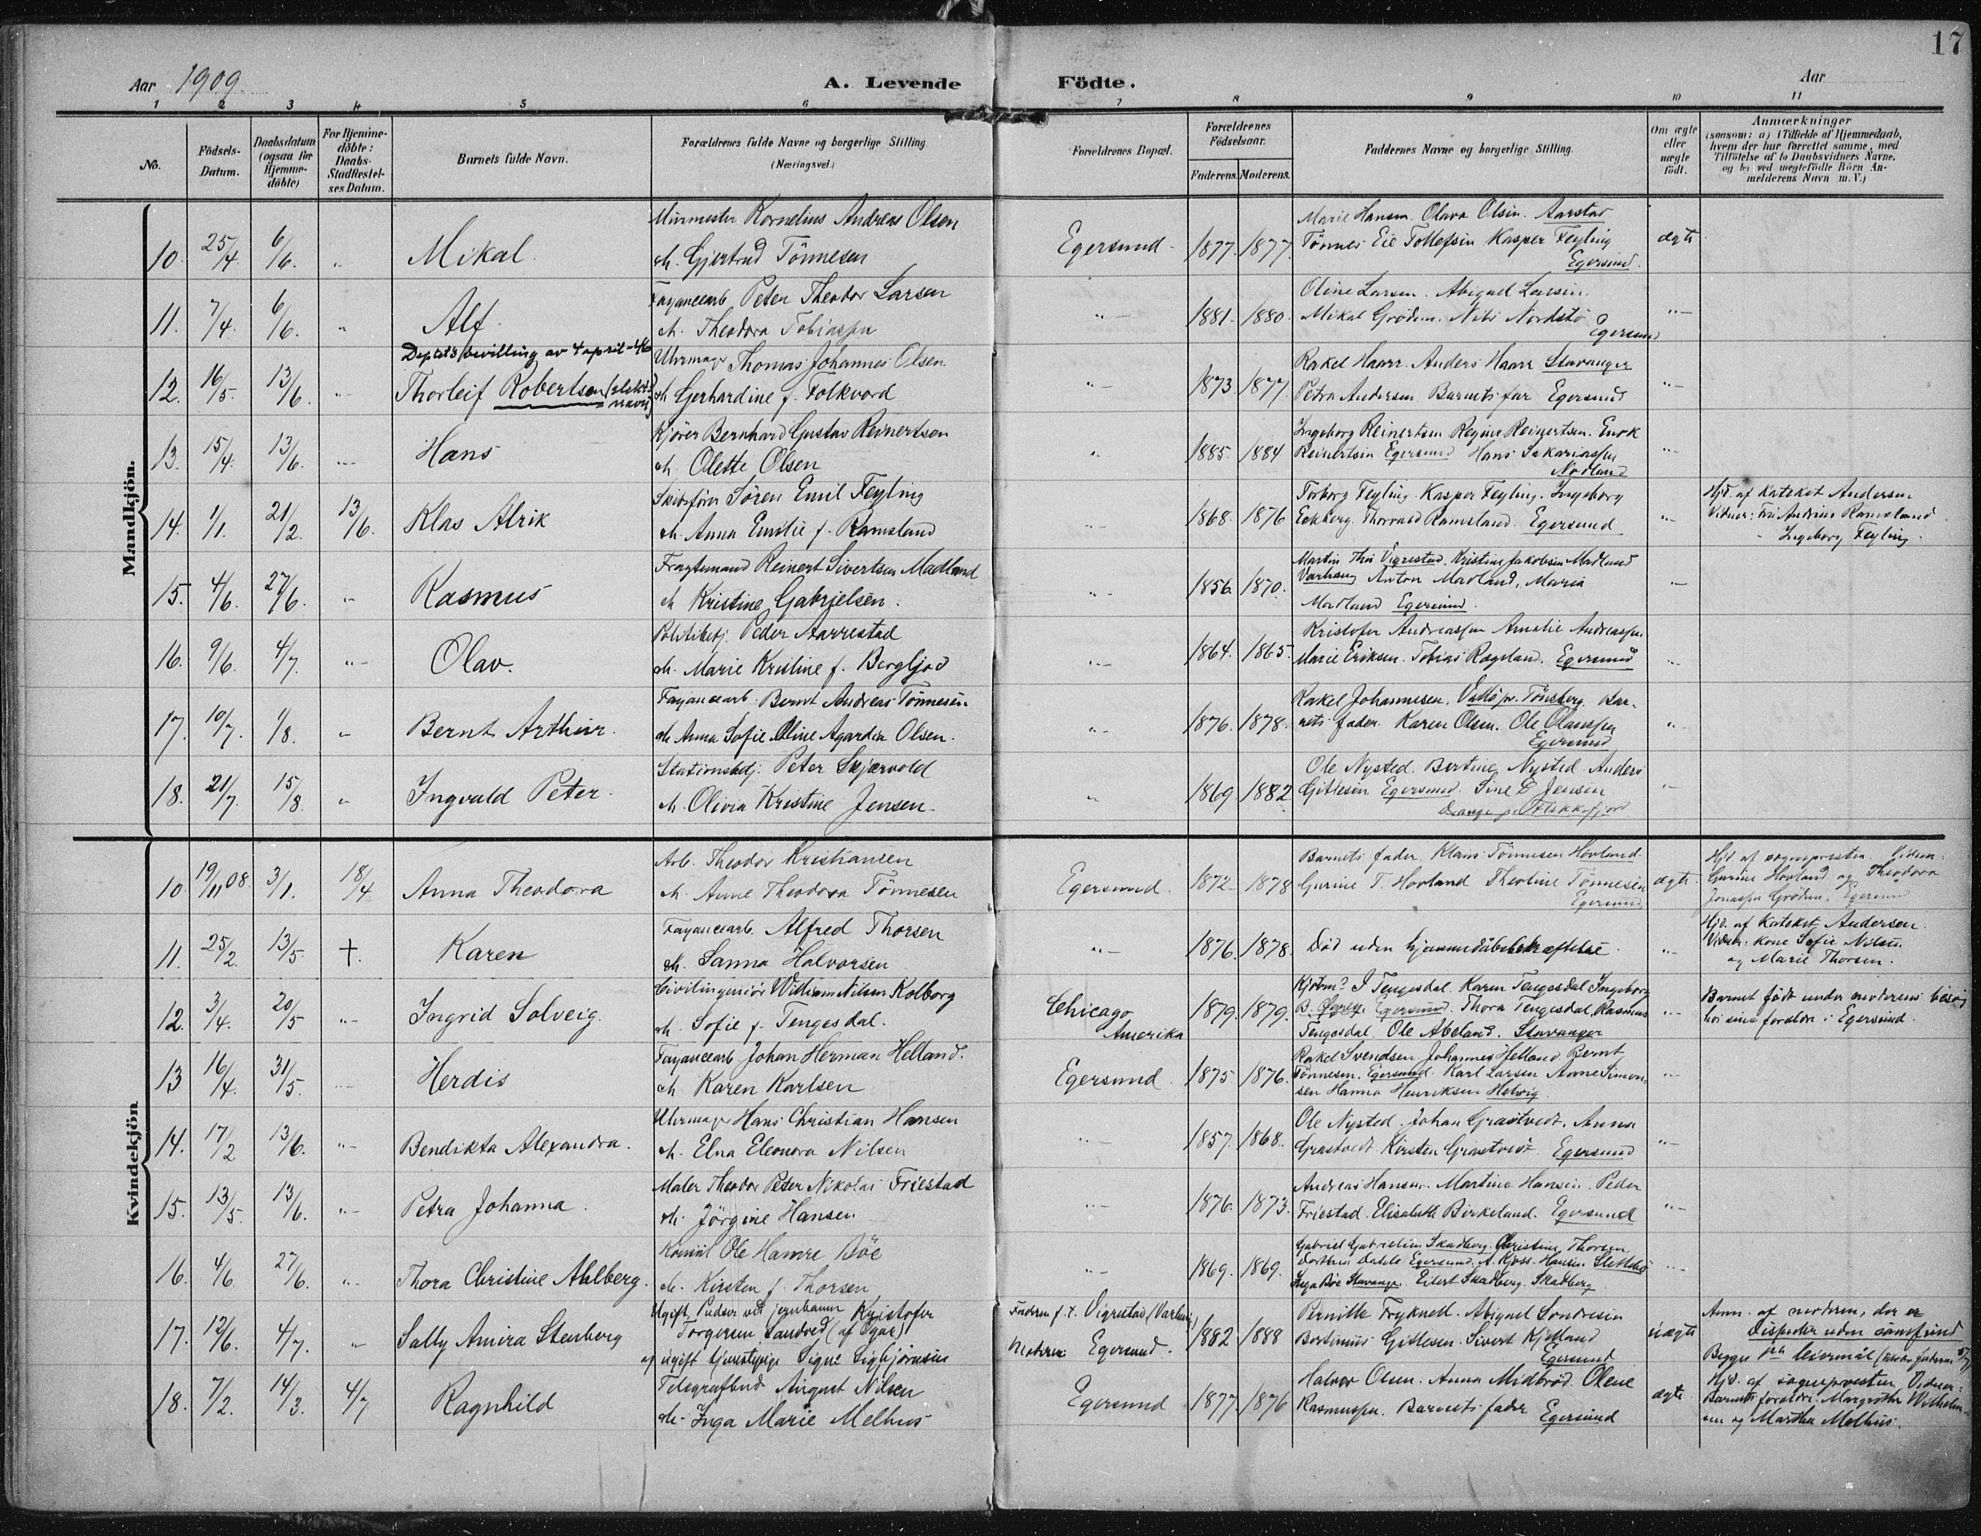 17
Aar 1909.
A. Levende Födte.
Aar
1 2 3 4 5 6 7 8 9 10 11
No.
Födsels-Datum.
Daabsdatum (ogsaa for Hjemme-döbte)
For Hjemme-döbte: Daabs-Stadfæstel-ses Datum.
Barnets fulde Navn.
Forældrenes fulde Navne og borgerlige Stilling (Næringsvei.)
Forældrenes Bopæl.
Forældrenes Födselsaar.
Faderens. Moderens.
Faddernes Navne og borgerlige Stilling.
Om ægte eller uægte födt.
Anmærkninger
(saasom: a) i Tilfælde af Hjemmedaab, hvem der har forrettet samme, med Tilföielse af to Daabsvidners Navne, og b) ved uægtefödte Börn An-melderens Navn m. V.)
Mandkjön.
10. 25/4 6/6. „ Mikal. Murmester Kornelius Andreas Olsen
Egersund. 1877. 1877. Marie Hansen. Olava Olsen. Aarstad
og Gjertrud Tönnesen Tönnes Eie Tollefsen Kasper Feyling ægte
Egersund.
11. 7/4. 6/6. „ Alf. Fayancearb. Peter Theodor Larsen
og Theodora Tobiassen „ 1881. 1880. Oline Larsen. Abigael Larsen.
Mikal Grödem. Nibi Nordstö Egersund
Deptets bevilling av 4 april-46
12. 16/5. 13/6. „ Thorleif Robertson (slekts navn) Uhrmager Thomas Johannes Olsen
og Gerhardine f. Folkvord „ 1873 1877. Rakel Haarr. Anders Haarr Stavanger
Petra Andersen Barnets far Egersund
13. 15/4. 13/6. „ Hans Kjörer Bernhard Gustav Reinertsen
og Olette Olsen „ 1885. 1884 Ingeborg Reinertsen Regine Reinertsen. Enok
Reinertsen Egersund Hans Sakariassen
Nodland
14. 1/1. 21/2. 13/6. Klas Alrik Skibsförer Sören Emil Feyling
og Anna Emilie f. Ramsland „ 1868. 1876 Torborg Feyling Kasper Feyling. Ingeborg
Eckberg. Thorvald Ramsland. Egersund
Hjd. af Kateket Andersen
Vidner: Fru Andrine Ramsland
- Ingeborg Feyling.
15. 4/6. 27/6. „ Rasmus Fragtemand Reinert Sivertsen Madland
og Kristine Gabrielsen. „ 1856. 1870. Martin Thu Vigrestad. Kristine Jakobsen Madland
Varhaug Anton Madland, Maria
Madland Egersund.
16. 9/6. 4/7. „ Olav. Politibetj. Peder Aarrestad
og Marie Kristine f. Bergljod „ 1864. 1865. Kristofer Andreassen Amalie Andreassen
Marie Eriksen. Tobias Rogeland. Egersund
17. 10/7. 1/8. „ Bernt Arthur. Fayancearb. Bernt Andreas Tönnesen
og Anna Sofie Oline Agardia Olsen. „ 1876. 1878. Rakel Johannesen, Vallö pr. Tönsberg. Bar-
nets fader. Karen Olsen. Ole Olaussen
Egersund
18. 21/7. 15/8. „ Ingvald Peter. Stationsbetj. Peter Skjærvold
og Olivia Kristine Jensen. „ 1869 1882 Ole Nysted. Bertine Nysted. Anders
Gittlesen Egersund. Sine E Jensen
Drange pr. Flekkefjord
Kvindekjön
10. 19/11 08. 3/1. 18/4 Anna Theodora Arb. Theodor Kristiansen
og Anne Theodora Tönnesen Egersund. 1872. 1878 Barnets fader Klaus Tönnesen Hovland
Gurine T. Hovland Theoline Tönnesen ægte
Egersund
Hjd. af sognepresten. Vidner:
Gurine Hovland og Theodora
Jonassen Grödem. Egersund
11. 25/2. 13/5 +. Karen Fayancearb. Alfred Thorsen
og Sanna Halvorsen „ 1876. 1878. Död uden hjemmedaabsbekræftelse
Hjd. af Kateket Andersen.
Vidner: kone Sofie Nilsen
og Marie Thorsen.
12. 3/4. 20/5 „ Ingrid Solveig. Civilingeniör William Nilsen Kolborg
og Sofie f. Tengesdal. Chicago Amerika 1879. 1879. Kjöbm. I Tengesdal Karen Tengesdal Ingeborg
Egersund. Thora Tengesdal Rasmus
Tengesdal. Ole Abeland. Stavanger
Barnet födt under moderens besög
hos sine forældre i Egersund.
13 16/4. 31/5. Herdis Fayancearb Johan Herman Helland.
og Karen Karlsen Egersund. 1875 1876. Rakel Svendsen Johannes Helland Bernt
Tönnesen. Egersund. Karl Larsen Anne Simon-
sen Hanna Henriksen Helvig.
14. 17/2 13/6. „ Bendikta Alexandra. Uhrmager Hans Christian Hansen
og Elna Eleonora Nilsen „ 1857. 1868. Ole Nysted. Johan Grastvedt, Anna
Grastvedt Kirsten Grastvedt Egersund
15. 13/5. 13/6. „ Petra Johanna. Maler Theodor Peter Nikolai Friestad
og Jörgine Hansen „ 1876. 1873. Andreas Hansen. Martine Hansen. Peder
Friestad. Elisabeth Birkeland. Egersund
16. 4/6. 27/6. „ Thora Christine Ahlberg. Ole Hamre Böe
og Kirsten f. Thorsen „ 1869. 1869. Gabriel Gabrielsen Skadberg. Christine Thorsen
Egersund. Hansen Slettebö
Inga Böe Stavanger Eilert Skadberg. Skadberg
17. 12/6. 4/7. „ Sally Amira Stenberg Ugift Pudser ved jernbanen Kristofer
Torgersen Sandved (af Ogna)
og ugift tjenestepige Signe Sigbjörnsen Faderen f. t. Vigrestad, Varhaug
Moderen Egersund. 1882 1888 Pernille Tryknell. Abigael Sondresen
Bertinius Gittlesen. Sivert Kjelland uægte
Egersund
Anm. af moderen, der er
Dissenter uden samfund
Begges 1ste leiermål
18. 7/2. 14/3. 4/7 Ragnhild Telegrafbud August Nilsen
og Inga Marie Melhus Egersund 1877. 1876 Halvor Olsen. Anna Midbröd. Olene
Rasmussen. Barnets fader Egersund ægte
Hjd. af sognepresten Vidner:
Barnets forældre. Margrethe Wilhelm-
sen og Martha Melhus.